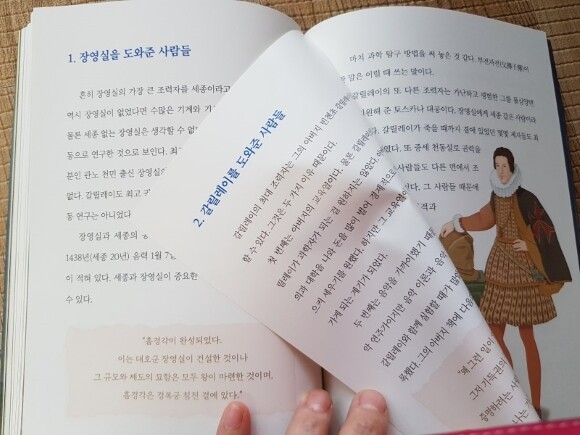 1. 장영실을 도와준 사람들
흔히 장영실의 가장 큰 조력자를 세종이라고
역시 장영실이 없었다면 수많은 기계와 기
물론 세종 없는 장영실은 생각할 수 없
동으로 연구한 것으로 보인다. 최
분인 관노 천편 출신 장영실
없다. 갈릴레이도 최고 구
동 연구는 아니었다
장영실과 세종의
1438년(세종 20년) 음력 1월 7
이 적혀 있다. 세종과 장영실이 중요한
수 있다.
"흠경각이 완성되었다.
이는 대호군 장영실이 건설한 것이나
그 규모와 제도의 묘함은 모두 왕이 마련한 것이며,
흠경각은 경복궁 침전 곁에 있다."
2. 갈릴레이를 도와준 사람들
갈릴레이의 최대 조력자는 그의 아버지 빈첸초 갈릴레이
할 수 있다. 그것은 두 가지 이유 때문이다.
첫 번째는 아버지의 교육열이다. 물론 갈릴레이
릴레이가 과학자가 되는 걸 원하지는 않았다. 아
의과 대학을 나와 돈을 많이 벌어 경제적으로
으켜 세우기를 원했다. 하지만 그 교육열
가게 되는 계기가 되었다.
두 번째는 음악을 가까이했기 때
악 연주가이지만 음악 이론과 음악
갈릴레이와 함께 실험할 때가 많았
목했다. 그의 아버지 책에 다음
"왜 그런 일이
그저 기득권의
증명하려는 사
나는
마치 과학 탐구 방법을 써 놓은 것 같다. 부전자전(父傳子傳)이
말은 이럴 때 쓰는 말이다.
갈릴레이의 또 다른 조력자는 가난하고 평범한 그를 물심양면
원해 준 토스카나 대공이다. 장영실에게 세종 같은 사람이라
갈릴레이가 죽을 때까지 곁에 있었던 몇몇 제자들도 최
또 중세 천동설로 권력을
사람들도 다른 면에서 조
그 사람들 때문에